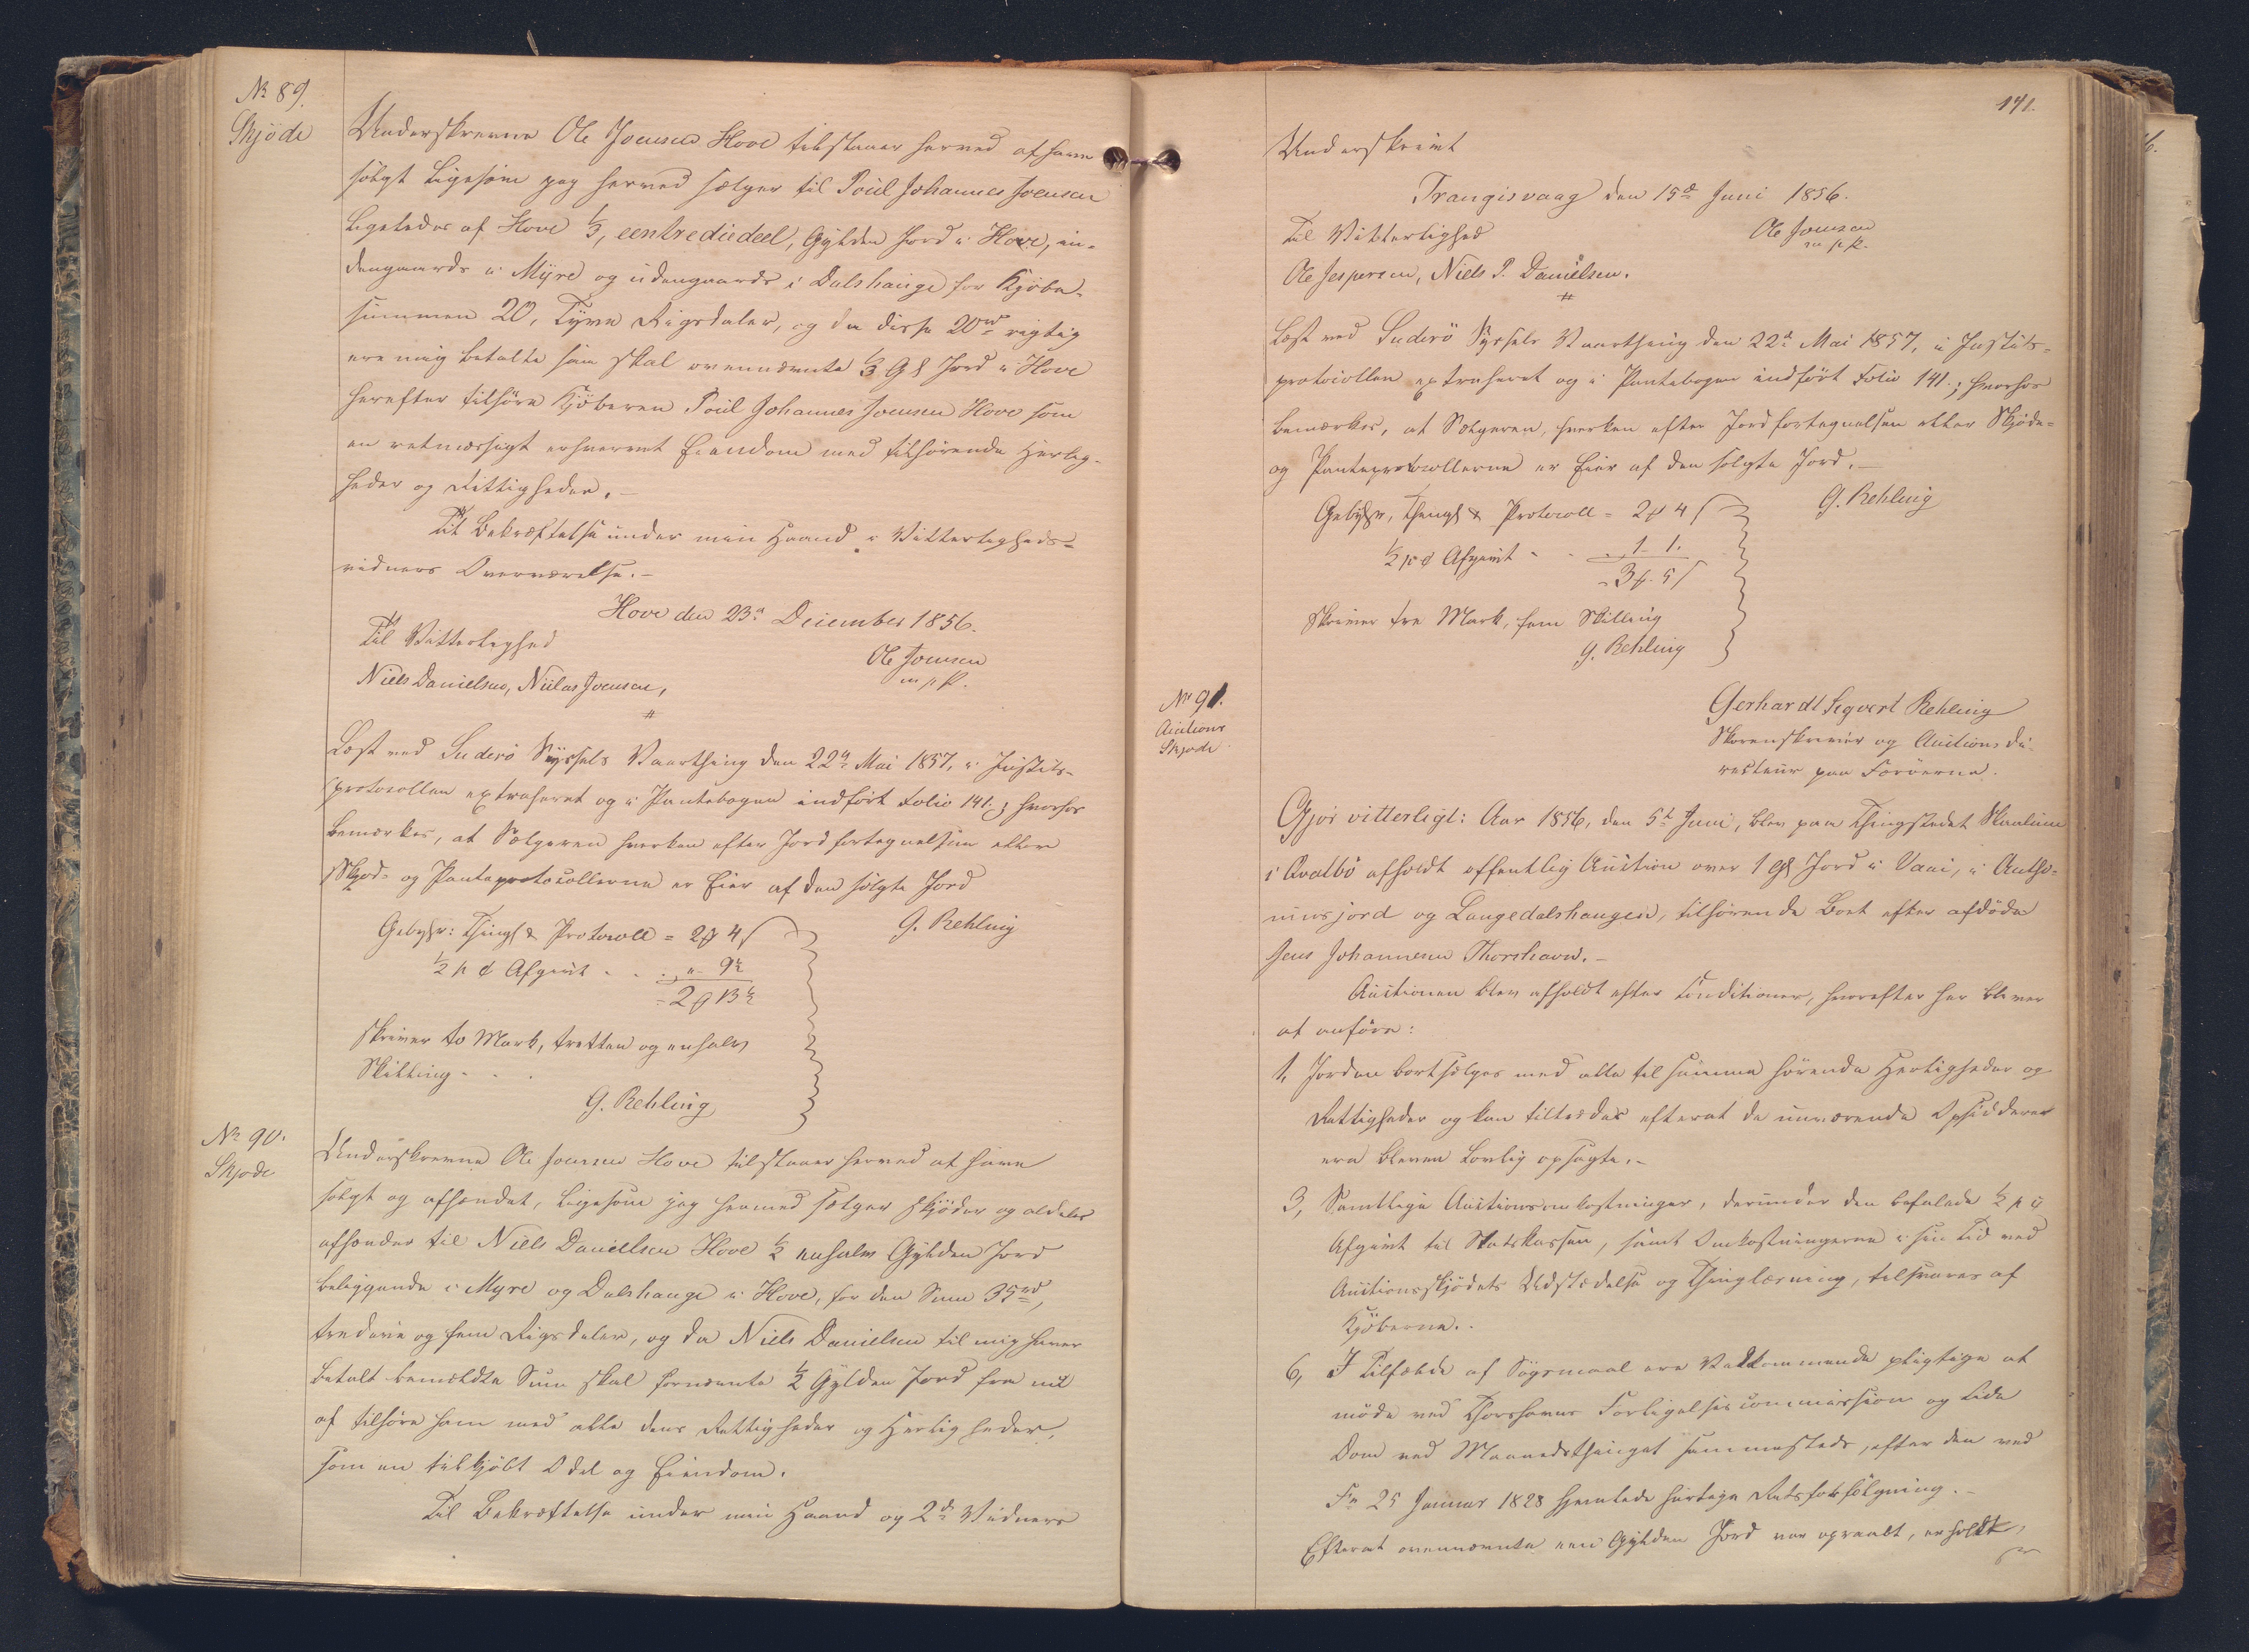 No 89.
Skjöde
Underskrevne Ole Joensen Hove tilstaaer herved at have
solgt ligesom jeg herved sælger til Poül Johannes Joensen
ligeledes af Hove 1/3, eentrediedeel, Gylden Jord i Hove, in-
dengaards i Myre og üdengaards i Dalshauge for Kjöbe-
summen 20, Tÿve Rigsdaler, og da disse 20rd rigtig
ere mig betalte saa skal ovennævnte 1/3 Gl Jord i Hove
herefter tilhöre Kjöberen Poül Johannes Joensen Hove som
en retmæssigt erhvervet Eiendom med tilhörende Herlig-
heder og Rettigheder.-
Til Bekræftelse under min Haand i Vitterligheds-
vidners Overværelse.-
Hove den 23d December 1856.
Til Vitterlighed
Ole Joensen
m. p. P.
Niels Danielsen, Niclas Joensen,
#
Læst ved Suderö Sÿssels Vaarthing den 22d Mai 1857, i Justits-
protocollen extraheret og i Pantebogen indfört Folio 141.; hvorhos
bemærkes, at Sælgeren hverken efter Jordfortegnelsen eller
Skjöd- og Panteprotocollerne er Eier af den solgte Jord
G. Rehling
Gebÿhr: Thingl & Protocoll = 2 4
1/2 p C Afgivt - - „ - 9 1/2
= 2 13 1/2
skriver to Mark, tretten og enhalv
Skilling - - .
G. Rehling
No 90.
Skjöde
Underskrevne Ole Joensen Hove tilstaaer herved at have
solgt og afhændet, ligesom jeg hermed sælger skjöder og aldeles
afhænder til Niels Danielsen Hove 1/2 enhalv Gylden Jord
beliggende i Myre og Dalshauge i Hove, for den Sum 35rd,
tredive og fem Rigsdaler, og da Niels Danielsen til mig haver
betalt bemeldte Sum skal fornævnte 1/2 Gylden Jord fra nu
af tilhöre ham med alle dens Rettigheder og Herligheder,
som en tilkjöbt Odel og Eiendom.
Til Bekræftelse under min Haand og 2de Vidners
141.
Underskrivt
Trangisvaag den 15d Juni 1856.
Til Vitterlighed
Ole Joensen
m. p. P.
Ole Jespersen, Niels P. Danielsen.
#
Læst ved Suderö Sÿssels Vaarthing den 22d Mai 1857, i Justits-
protocollen extraheret og i Pantebogen indfört Folio 141.; hvorhos
bemærkes, at Sælgeren, hverken efter Jordfortegnelsen eller Skjöde-
og Panteprotocollerne er Eier af den solgte Jord.-
G. Rehling
Gebÿhr, Thingl & Protocoll = 2 4
1/2 p C Afgivt - - „ 1 - 1.
= 3 5
Skriver tre Mark, fem Skilling
G. Rehling
No 91.
Auctions
Skjöde
Gerhardt Sigvert Rehling
Sorenskriver og Auctionsdi-
recteur paa Færöerne.
Gjör vitterligt: Aar 1856, den 5te Juni, blev paa Thingstedet
i Qvalbö afholdt offentlig Aüction over 1 Gl Jord i Vani, i Antho-
niusjord og Langedalshaugen, tilhörende Boet efter afdöde
Jens Johannesen Thorshavn.-
Aüctionen blev afholdt efter Conditioner, hvorefter her bliver
at anföre:
1, Jorden bortsælges med alle til samme hörende Herligheder og
Rettigheder og kan tiltrædes efterat de nuværende Opsiddere
ere blevne Lovlig opsagte.-
3, Samtlige Auctionsomkostninger, derunder den befalede 1/2 p C
Afgivt til Statskassen, samt Omkostningerne i sin Tid ved
Aüctionsskjödets Udstædelse og Thinglæsning, tilsvares af
Kjöberne.-
6, I Tilfælde af Sögsmaal ere Vedkommende pligtige at
möde ved Thorshavns Forligelsescommission og lide
Dom ved Maanedsthinget sammesteds, efter den ved
Fr 25 Januar 1828 hjemlede hurtige Retsforfölgning.-
Efterat ovennævnte een Gylden Jord var opraabt, erholdt